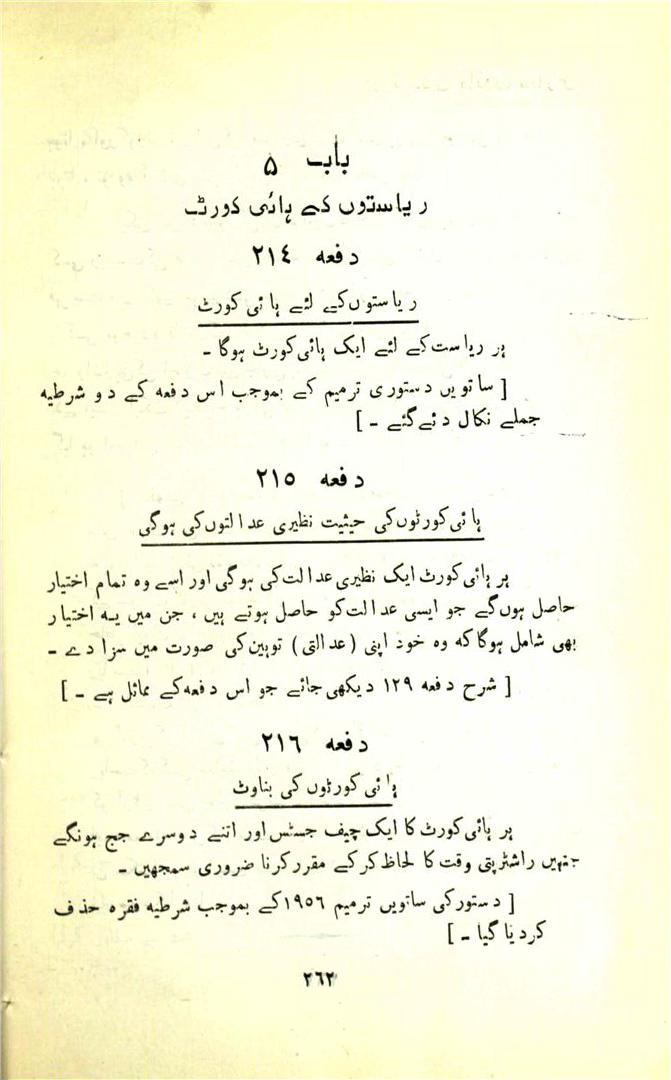 باب ۵
ریاستوں کے ہائی کورٹ
دفعہ ۲۱٤
ریاستوں کے لئے ہائی کورٹ
ہر ریاست کے لئے ایک ہائی کورٹ ہوگا ۔
[ ساتویں دستوری ترمیم کے بموجب اس دفعہ کے دو شرطیہ
جملے نکال دئے گئے ۔ ]
دفعہ ۲۱۵
ہائی کورٹوں کی حیثیت نظیری عدالتوں کی ہوگی
ہر ہائی کورٹ ایک نظیری عدالت کی ہوگی اور اسے وہ تمام اختیار
حاصل ہوں گے جو ایسی عدالت کو حاصل ہوتے ہیں ، جن میں یہ اختیار
بھی شامل ہوگا کہ وہ خود اپنی ( عدالتی ) توہین کی صورت میں سزا دے ۔
[ شرح دفعہ ۱۲۹ دیکھی جائے جو اس دفعہ کے مماثل ہے ۔ ]
دفعہ ۲۱٦
ہائی کورٹوں کی بناوٹ
ہر ہائی کورٹ کا ایک چیف جسٹس اور اتنے دوسرے جج ہونگے
جنہیں راشٹرپتی وقت کا لحاظ کر کے مقرر کرنا ضروری سمجھیں ۔
[ دستور کی ساتویں ترمیم ۱۹۵٦ کے بموجب شرطیہ فقرہ حذف
کر دیا گیا ۔ ]
۲٦۲